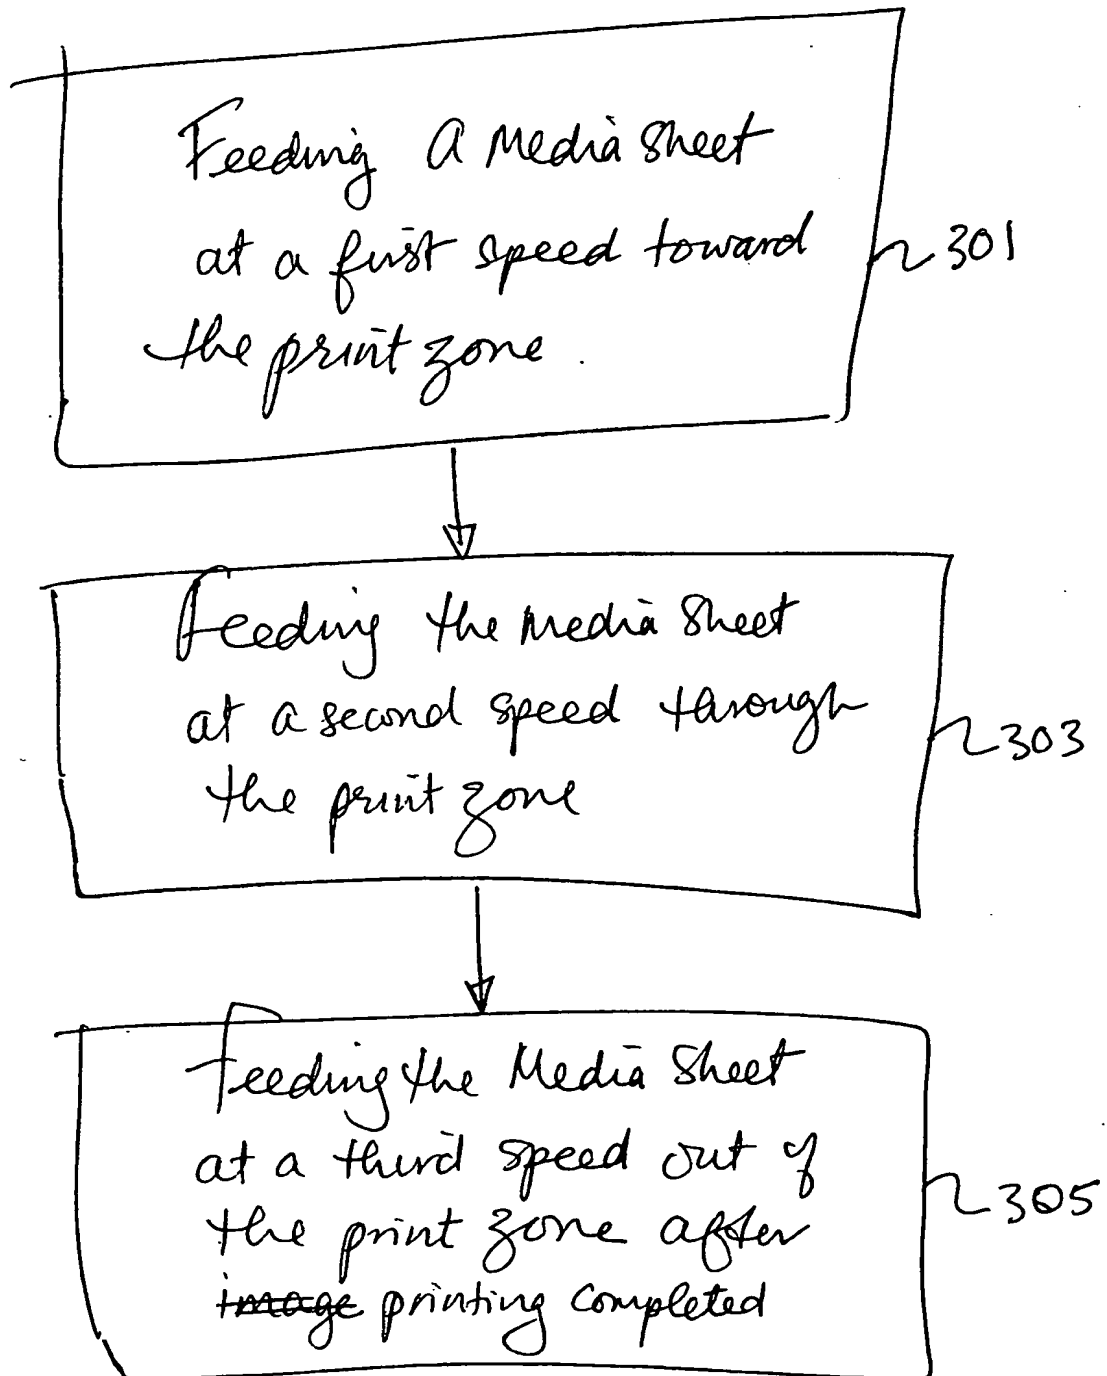 Feeding a Media Sheet
at a first speed toward
301
the print zone.
Feeding the Media Sheet
at a second speed through
303
the print zone
Feeding the Media Sheet
at a third speed out of
305
the print zone after
image printing completed